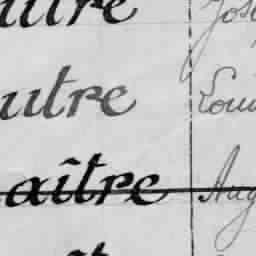 utre Jos
utre Loui
aître Aug